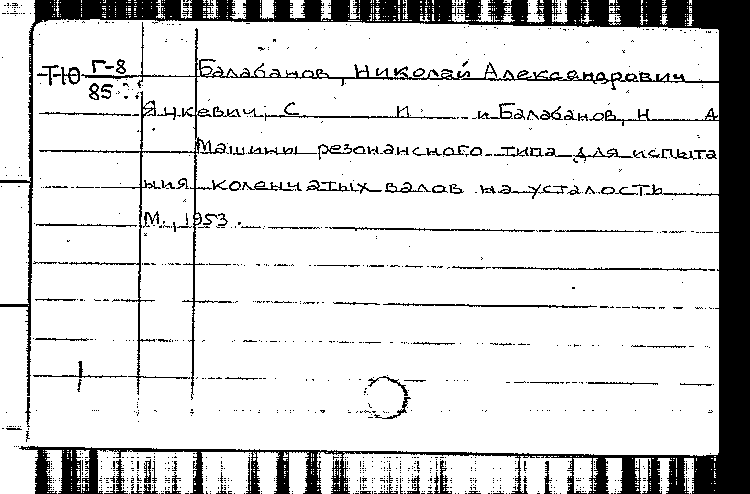 Т-10 Г-8 Балабанов, Николай Александрович
85
Яцкевич, С И и Балабанов, Н А
Машины резонансного типа для испыта
ния коленчатых валов на усталость
М., 1953.